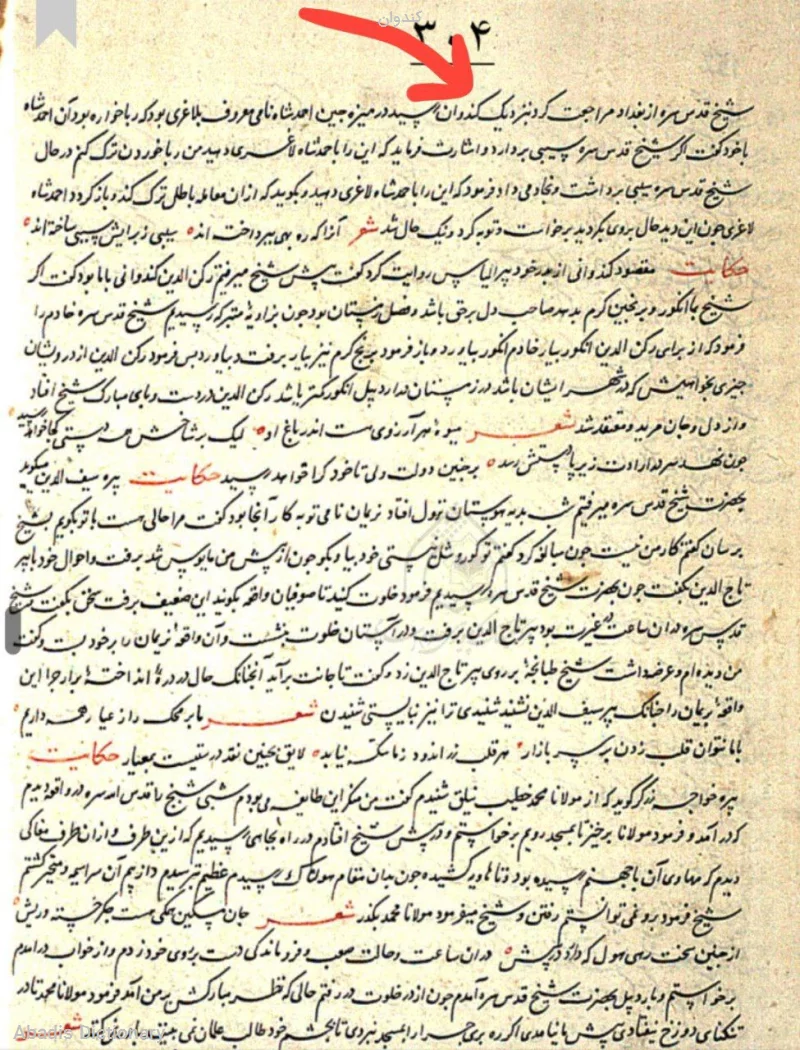 کندوان
۳۰۴
شیخ قدس سره از بغداد مراجعت کرد نزدیک کندوان رسید در میزه جین احمدشاه نامی معروف بلاغری بود که رباخواره بود آن احمدشاه
باخود گفت اگر شیخ قدس سره سیبی بردارد و اشارت فرماید که این را باحمدشاه لاغری دهید من رباخوردن ترک کنم در حال
شیخ قدس سره سیبی برداشت و بخادم داد و فرمود که این را باحمدشاه لاغری دهید و بگوید که ازان معامله باطل ترک کند و بازگردد احمدشاه
لاغری چون این دید حال بروی بگردید برخاست و توبه کرد و نیک حال شد شعر آنرا که ره بهی بپرداخته اند سیبی ز برایش سببی ساخته اند
حکایت مقصود کندوانی از پدر خود پیر الیاس روایت کرد گفت پیش شیخ میرفتیم رکن الدین کندوانی باما بود گفت اگر
شیخ با انگور و برنجین گرم بدهد صاحب دل برحق باشد و فصل زمستان بود چون بزاویه متبرکه رسیدیم شیخ قدس سره خادم را
فرمود که از برای رکن الدین انگور بیار خادم انگور بیاورد و باز فرمود برنج گرم نیز بیار برفت و بیاورد پس فرمود رکن الدین از درویشان
چیزی بخواهیش که در شهر ایشان باشد در زمستان در اردبیل انگور کمتر باشد رکن الدین در دست و پای مبارک شیخ افتاد
و از دل و جان مرید و معتقد شد شعر میوه هر آرزوی هست اندر باغ او لیک بر شاخش چه دستی کجا خواهد رسید
چون نهد سر در ارادت زیر پا دستش رسد بر چنین دولت ولی تا خود کرا قوا بد رسید حکایت پیره سیف الدین میگوید
بحضرت شیخ قدس سره میرفتیم شب بدیه تزول افتاد نریمان نامی توبه کار آنجا بود گفت مرا حالی هست با تو بگویم بشیخ
برسان گفتم کار من نیست چون مبالغه کرد گفتم تو کور و شل نیستی خود بیا و بگو چون از پیش من مایوس شد برفت و احوال خود با پیر
تاج الدین بگفت چون بحضرت شیخ قدس سره رسیدیم فرمود خلوت کنید تا صوفیان واقعه بگویند این ضعیف برفت سخن بگفت و شیخ
قدس سره دران ساعت در غیرت بود پیر تاج الدین برفت و در آستان خلوت بنشست و آن واقعه نریمان را برخود بست و گفت
من دیده ام و عرضه داشت شیخ طبانچه بر روی پیر تاج الدین زد و گفت تا جانت برآید آنچنانک حال در درۀ انداخته بار چرا این
واقعه نریمان را چنانک پیر سیف الدین نشنید شنیدی ترا نیز نبایستی شنیدن شعر ما بر محک راز عیار همه داریم
با ما نتوان قلب زدن بر سر بازار هر قلب زر اندود ز ما سکه نیابد لایق بچنین نقد درستیست بمعیار حکایت
پیره خواجه زرگر گوید که از مولانا محمد خطیب نیلق شنیدم گفت من منکر این طایفه می بودم شبی شیخ را قدس الله سره در واقعه دیدم
که درآمد و فرمود مولانا برخیز تا بمسجد رویم برخواستم و در پیش شیخ افتادم در راه بجاهی رسیدیم که ازین طرف و ازان طرف مغاکی
دیدم که مهاوی آن با جهنم رسیده بود و تا هاویه کشیده چون بدان مقام هولناک رسیدم عظیم بترسیدم و از بیم آن سراسیمه و متحیر گشتم
شیخ فرمود برو نمی توانستم رفتن و شیخ میفرمود مولانا محمد بگذر شعر جان مسکین چکی هست جگر خسته و ریش
از چنین سخت رهی هول که دارد در پیش دران ساعت و حالت صعب و فروماندگی دست بروی خود زدم و از خواب درآمدم
برخواستم و باردبیل بحضرت شیخ قدس سره آمدم چون از در خلوت در رفتم حالی که نظر مبارکش بر من آمد فرمود مولانا محمد تا در
تنکنای دوزخ نیفتادی پیش ما نیامدی اگر ره بری چرا را بمسجد نبردی تا بچشم خود طالب علمان نمی بینی شعر
Abadis Dictionary